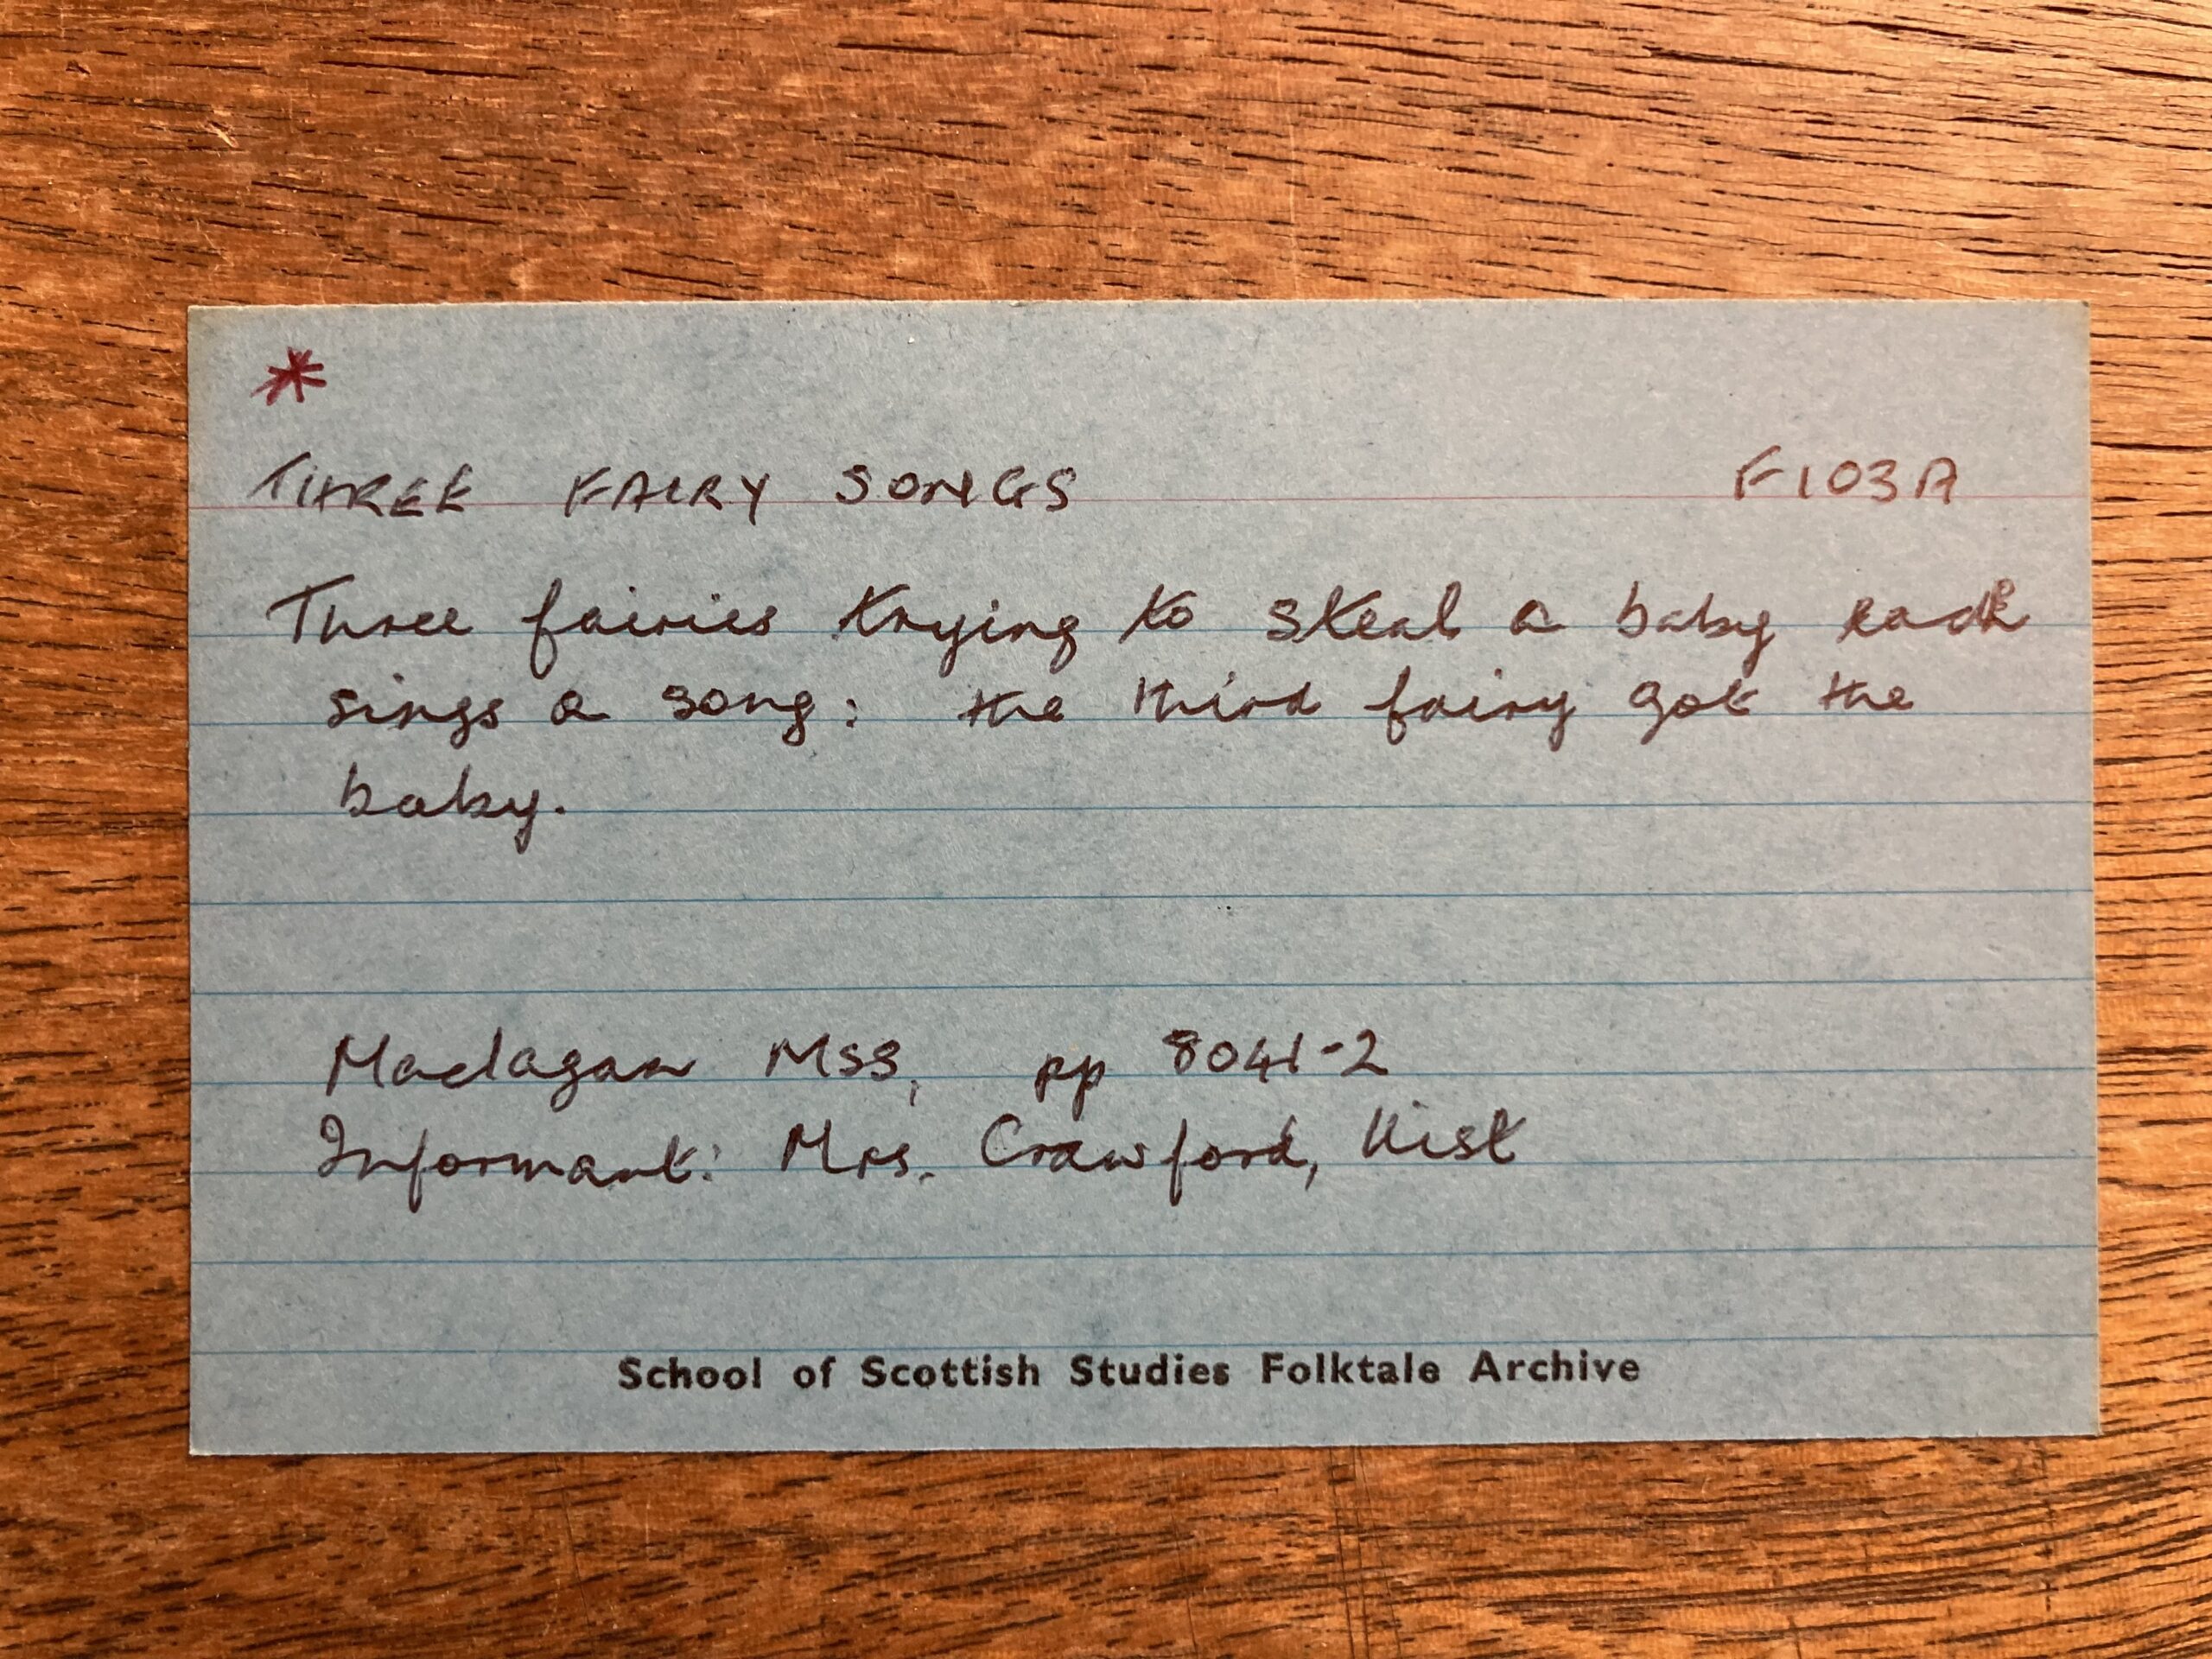 *
THREE FAIRY SONGS F103A
Three fairies trying to steal a baby each
sings a song: the third fairy got the
baby.
Maclagan MSS, pp 8041-2
Informant: Mrs. Crawford, Uist
School of Scottish Studies Folktale Archive